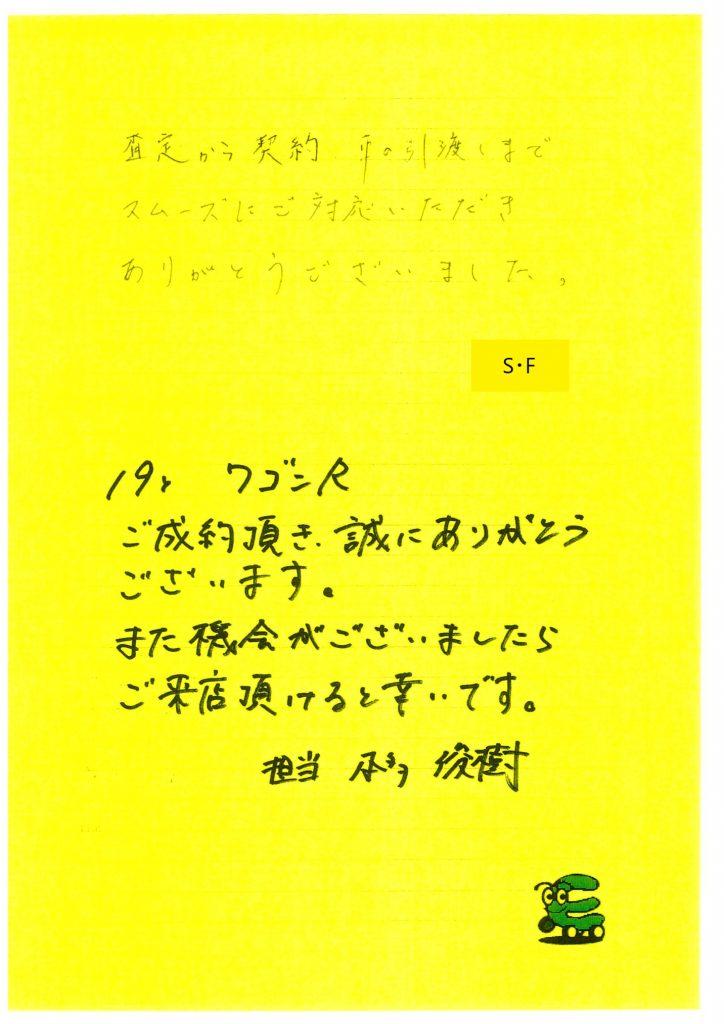 査定から契約 車の引渡しまで
スムーズにご対応いただき
ありがとうございました。
S・F
19y ワゴンR
ご成約頂き、誠にありがとう
ございます。
また機会がございましたら
ご来店頂けると幸いです。
担当 本多 俊樹